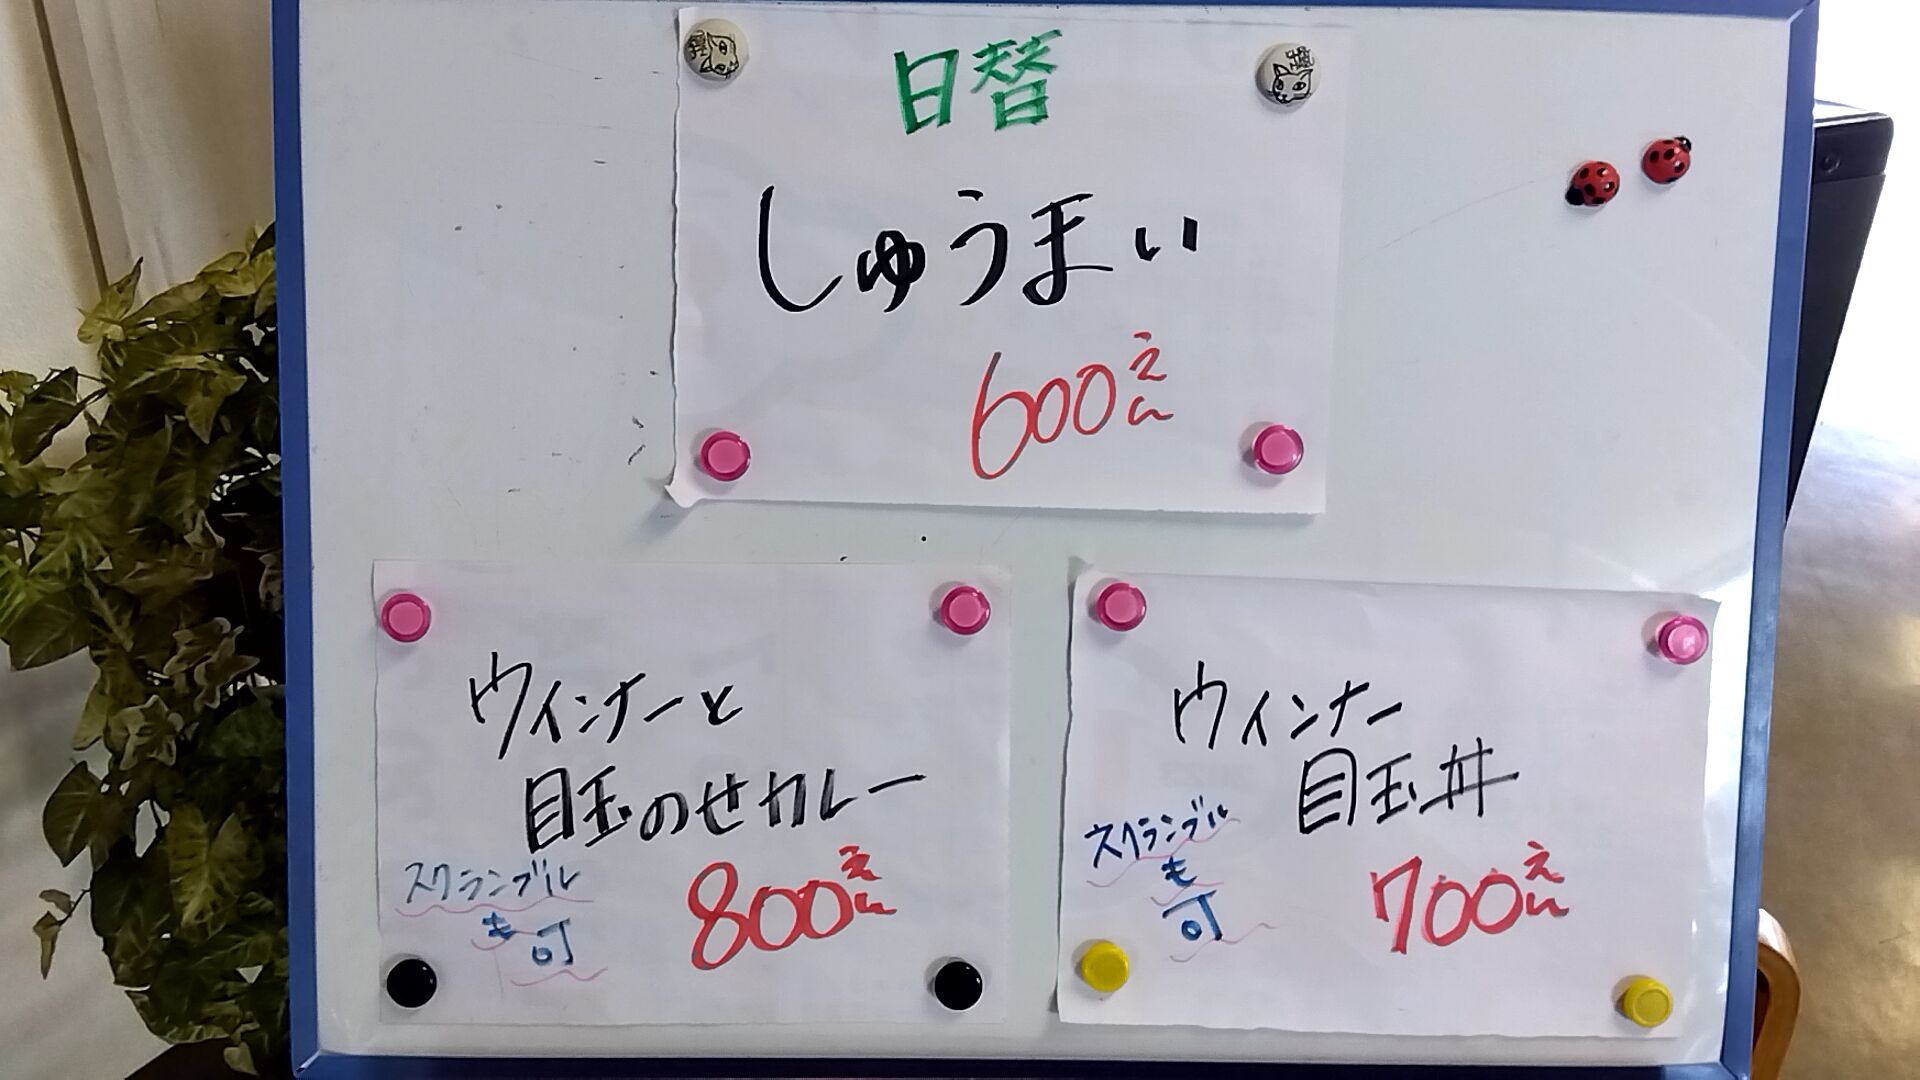 日替
しゅうまい
600えん
ウインナーと
目玉のせカレー
スクランブル
も
可
800えん
ウインナー
目玉丼
スクランブル
も
可
700えん